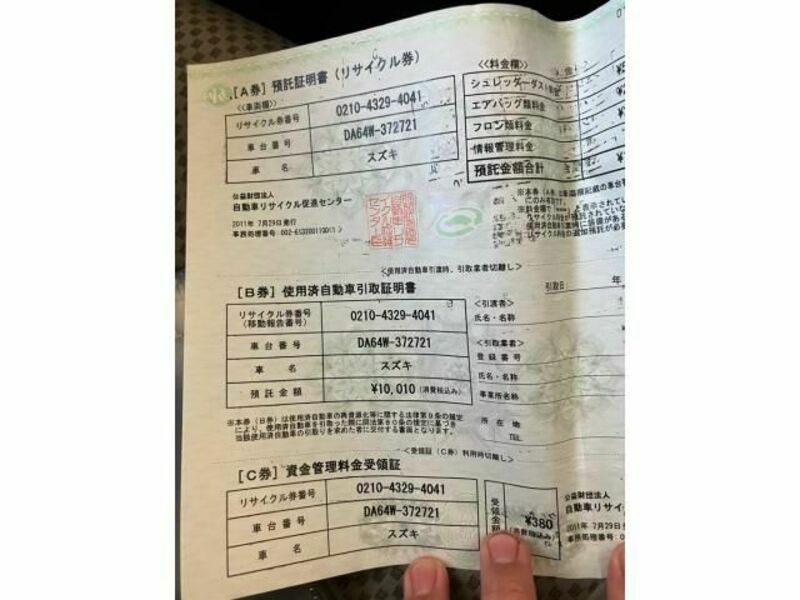 [A券] 預託証明書 (リサイクル券)
≪車両欄≫
リサイクル券番号 0210-4329-4041
車台番号 DA64W-372721
車名 スズキ
公益財団法人
自動車リサイクル促進センター
2011年 7月29日発行
≪料金欄≫
シュレッダーダスト
エアバッグ類料金
フロン類料金
情報管理料金
預託金額合計
<使用済自動車引渡時、引取業者切離し>
[B券] 使用済自動車引取証明書
リサイクル券番号
(移動報告番号) 0210-4329-4041
車台番号 DA64W-372721
車名 スズキ
預託金額 ¥10,010 (消費税込み)
※本券 (B券) は使用済自動車の再資源化等に関する法律第9条の規定
により、使用済自動車を引取った際に同法第80条の規定に基づき
当該使用済自動車の引取りを求めた者に交付する書面となります。
引取日 年
<引渡者>
氏名・名称
<引取業者>
登録番号
氏名・名称
事業所名称
所在地
TEL
<受領証 (C券) 利用時切離し>
[C券] 資金管理料金受領証
リサイクル券番号 0210-4329-4041
車台番号 DA64W-372721
車名 スズキ
受領金額 ¥380
(消費税込み)
公益財団法人
自動車リサイクル
2011年 7月29日
事務処理番号: